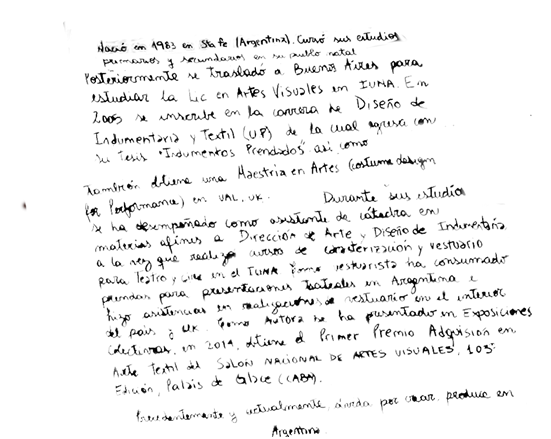 Nació en 1983 en Sta fe (Argentina). Cursó sus estudios
primarios y secundarios en su pueblo natal
Posteriormente se trasladó a Buenos Aires para
estudiar la Lic en Artes Visuales en IUNA. En
2005 se inscribe en la carrera de Diseño de
Indumentaria y Textil (UP) de la cual egresa con
su tesis "Indumentos Prendados" así como
también obtiene una Maestría en Artes (costume design
for Performance) en UAL, UK. Durante sus estudios
se ha desempeñado como asistente de cátedra en
materias afines a Dirección de Arte y Diseño de Indumentaria
a la vez que realiza cursos de caracterización y vestuario
para Teatro y cine en el IUNA como vestuarista ha consumado
prendas para presentaciones teatrales en Argentina e
hizo asistencias en realizaciones de vestuario en el interior
del país y UK. Como Autora se ha presentado en Exposiciones
Colectivas, en 2014, obtiene el Primer Premio Adquisición en
Arte Textil del SALON NACIONAL DE ARTES VISUALES, 103º
Edición, Palais de Glace (CABA).
y actualmente, ávida por crear, produce en
Argentina.